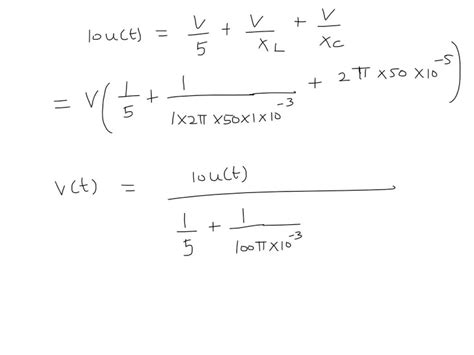 10u(t) = V/5 + V/X_L + V/X_C
= V(1/5 + 1/(1×2π×50×1×10^-3) + 2π×50×10^-5)
V(t) = 10u(t)/(1/5 + 1/(100π×10^-3)